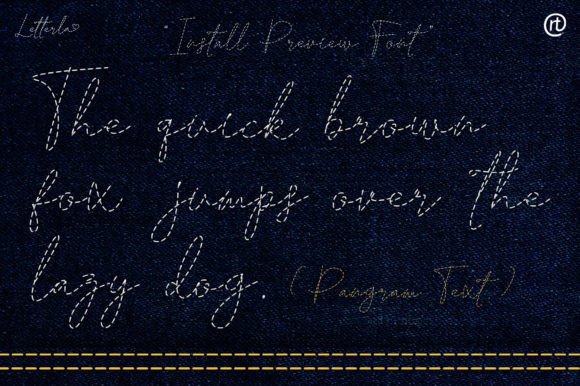 Letterla
rt
"Install Preview Font"
The quick brown
fox jumps over the
lazy dog. (Pangram Text)